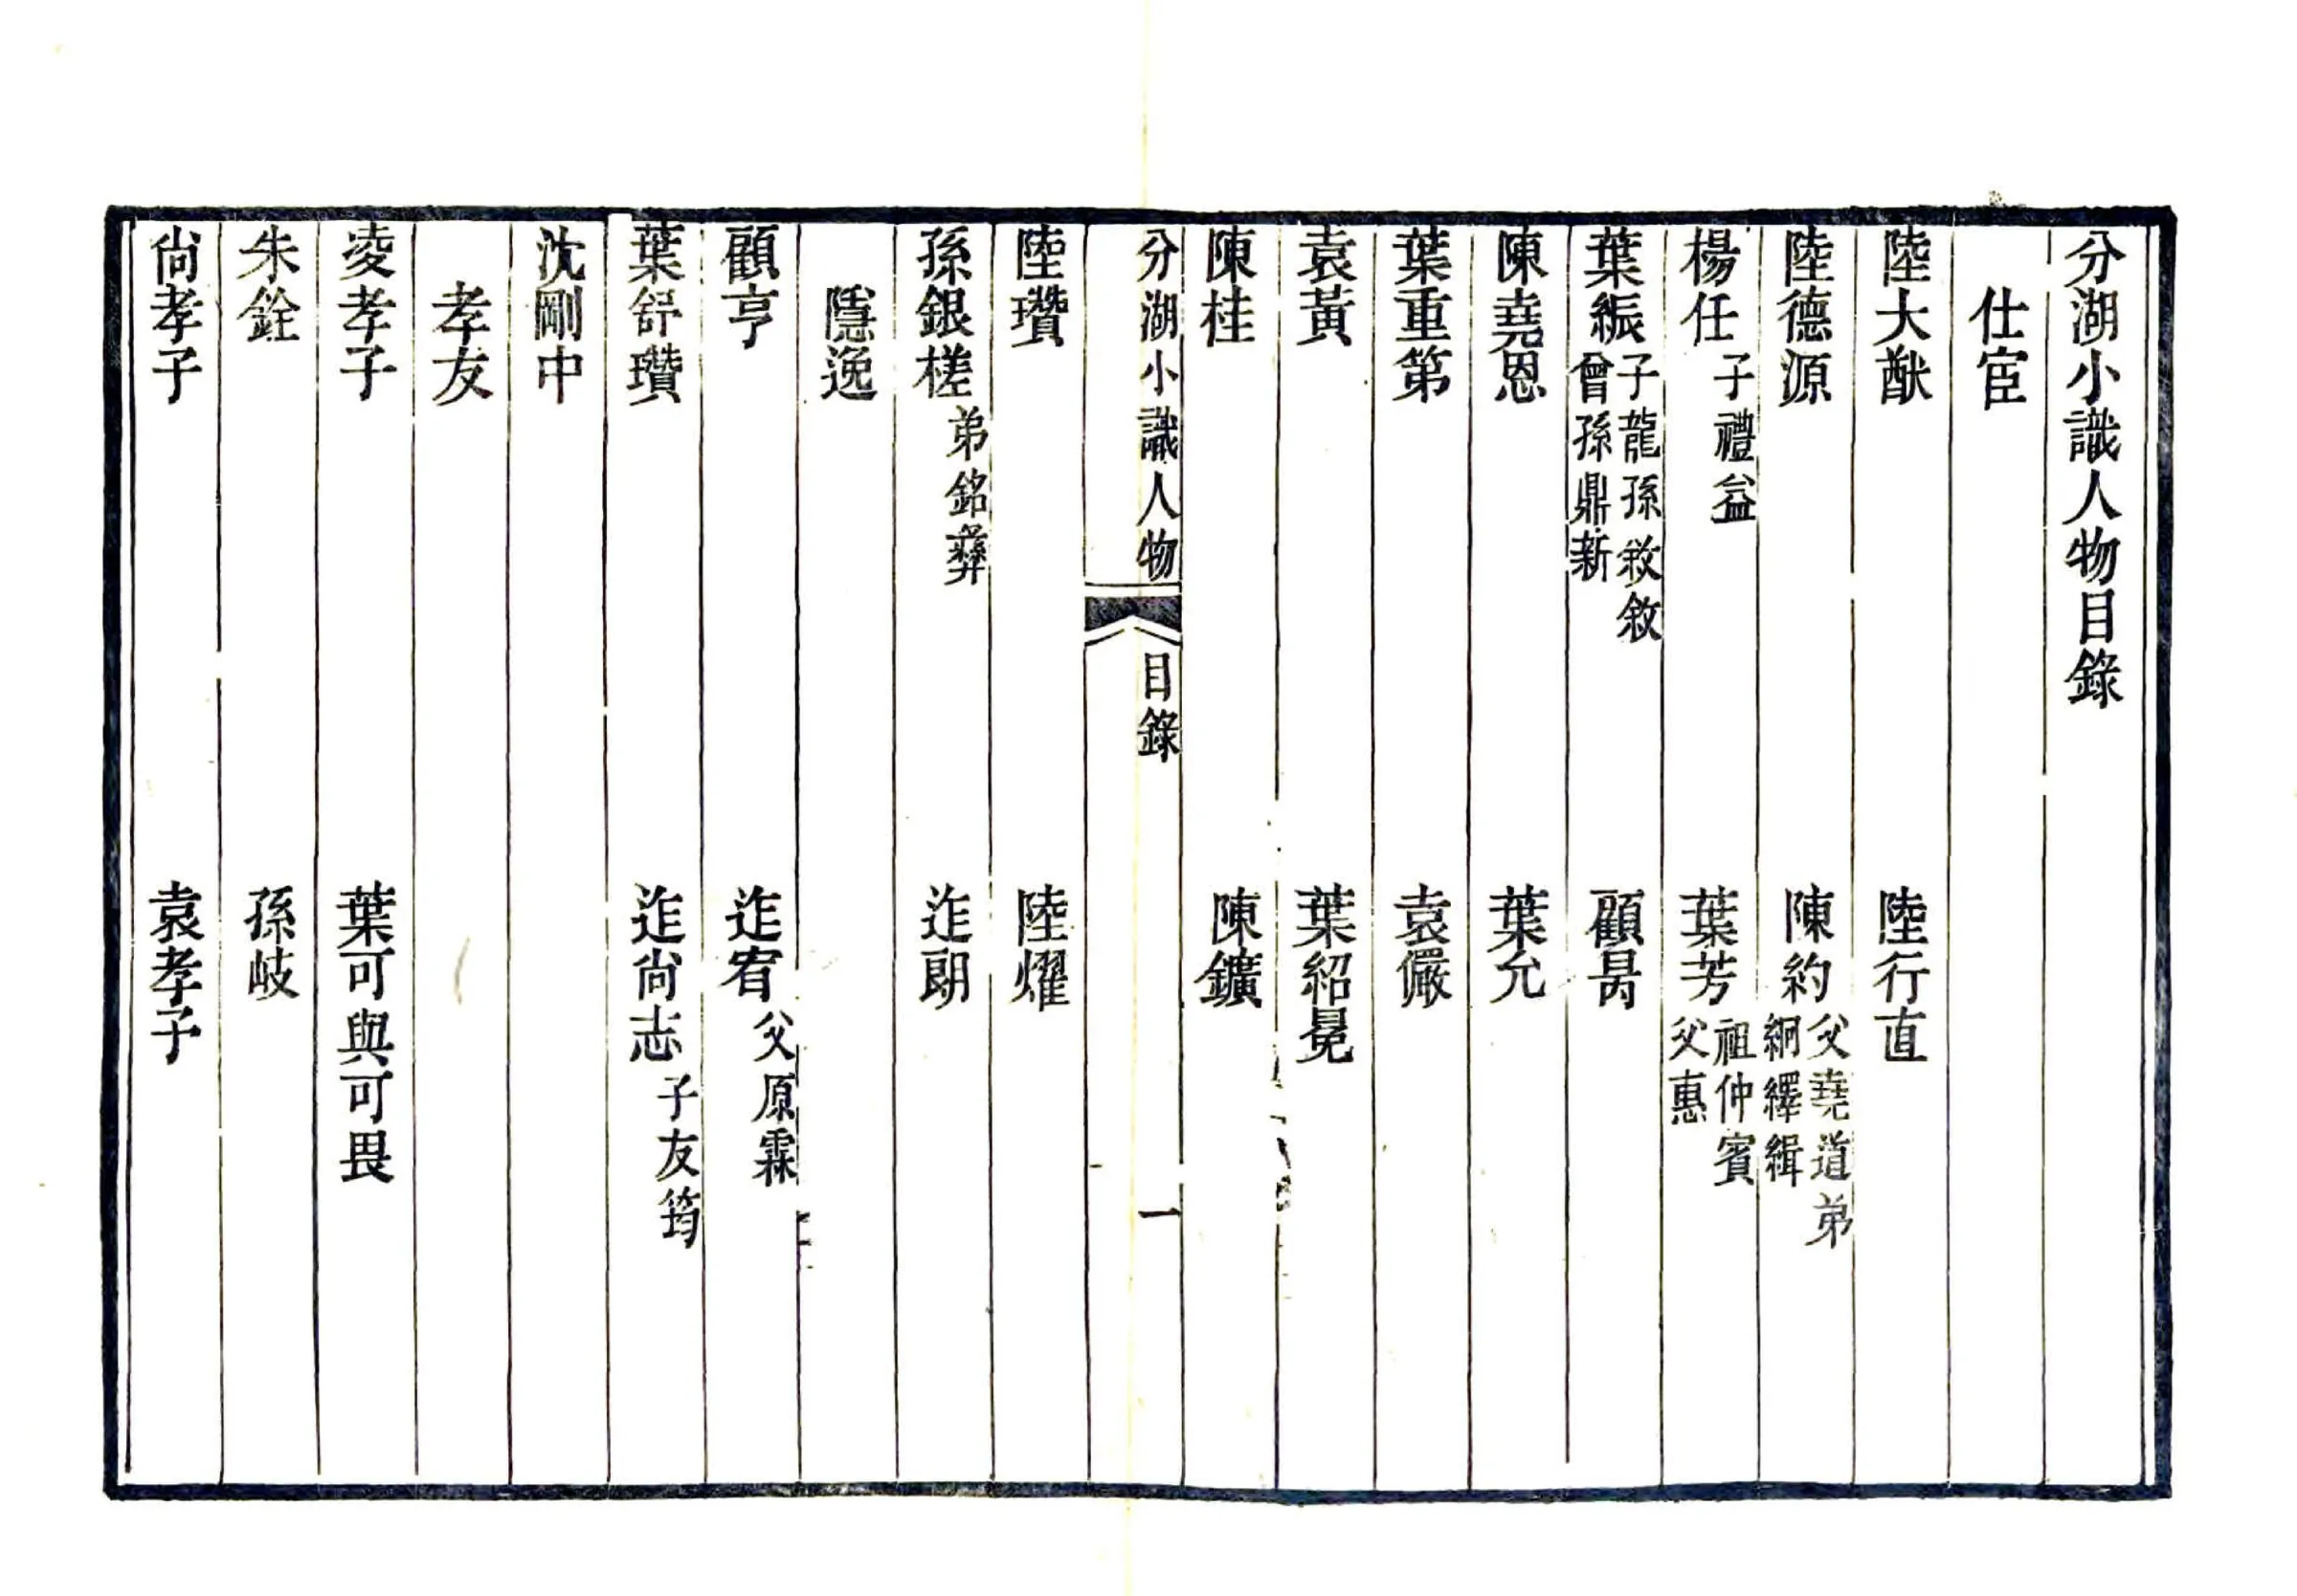 分湖小識人物目錄
仕宦
陸大猷 陸行直
陸德源 陳約 父堯道弟 綗繹緝
楊任 子禮益 葉芳 祖仲賓 父惠
葉紳 子龍孫敘敘 曾孫鼎新 顧昺
陳堯恩 葉允
葉重第 袁儼
袁黃 葉紹冕
陳桂 陳鑛
分湖小識人物 目錄 一
陸瓚 陸燿
孫銀槎 弟銘彝 迮朗
隱逸
顧亨 迮宥 父原霖
葉舒瓚 迮尚志 子友筠
沈剛中
孝友
凌孝子 葉可與可畏
朱銓 孫岐
尙孝子 袁孝子